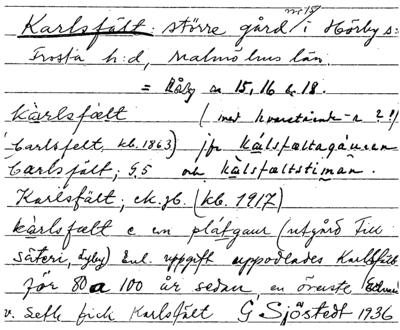 nr 15
Karlsfält: större gård i Hörby s:n
Frosta h:d, Malmöhus län.
= Råby nr 15, 16 & 18.
kàrlsfælt (med konsonant-r ? ?)
Carlsfelt, kb. 1863) jfr kálsfæltagáuren
Carlsfält, G.5 och kàlsfæltstiman.
Karlsfält, ek. gb. (kb. 1917)
kàrlsfælt e en plátgaur (utgård till
säteri, Lyby) Enl. uppgift uppodlades Karlsfält
för 80 a 100 år sedan, en överste
v. Seth fick Karlsfält G Sjöstedt 1936